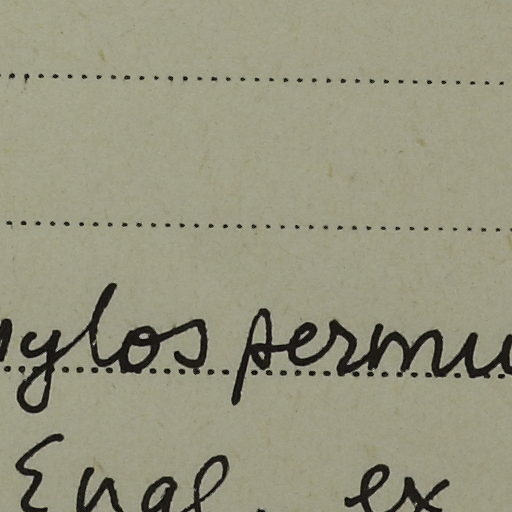 ylospermu
Engl. ex